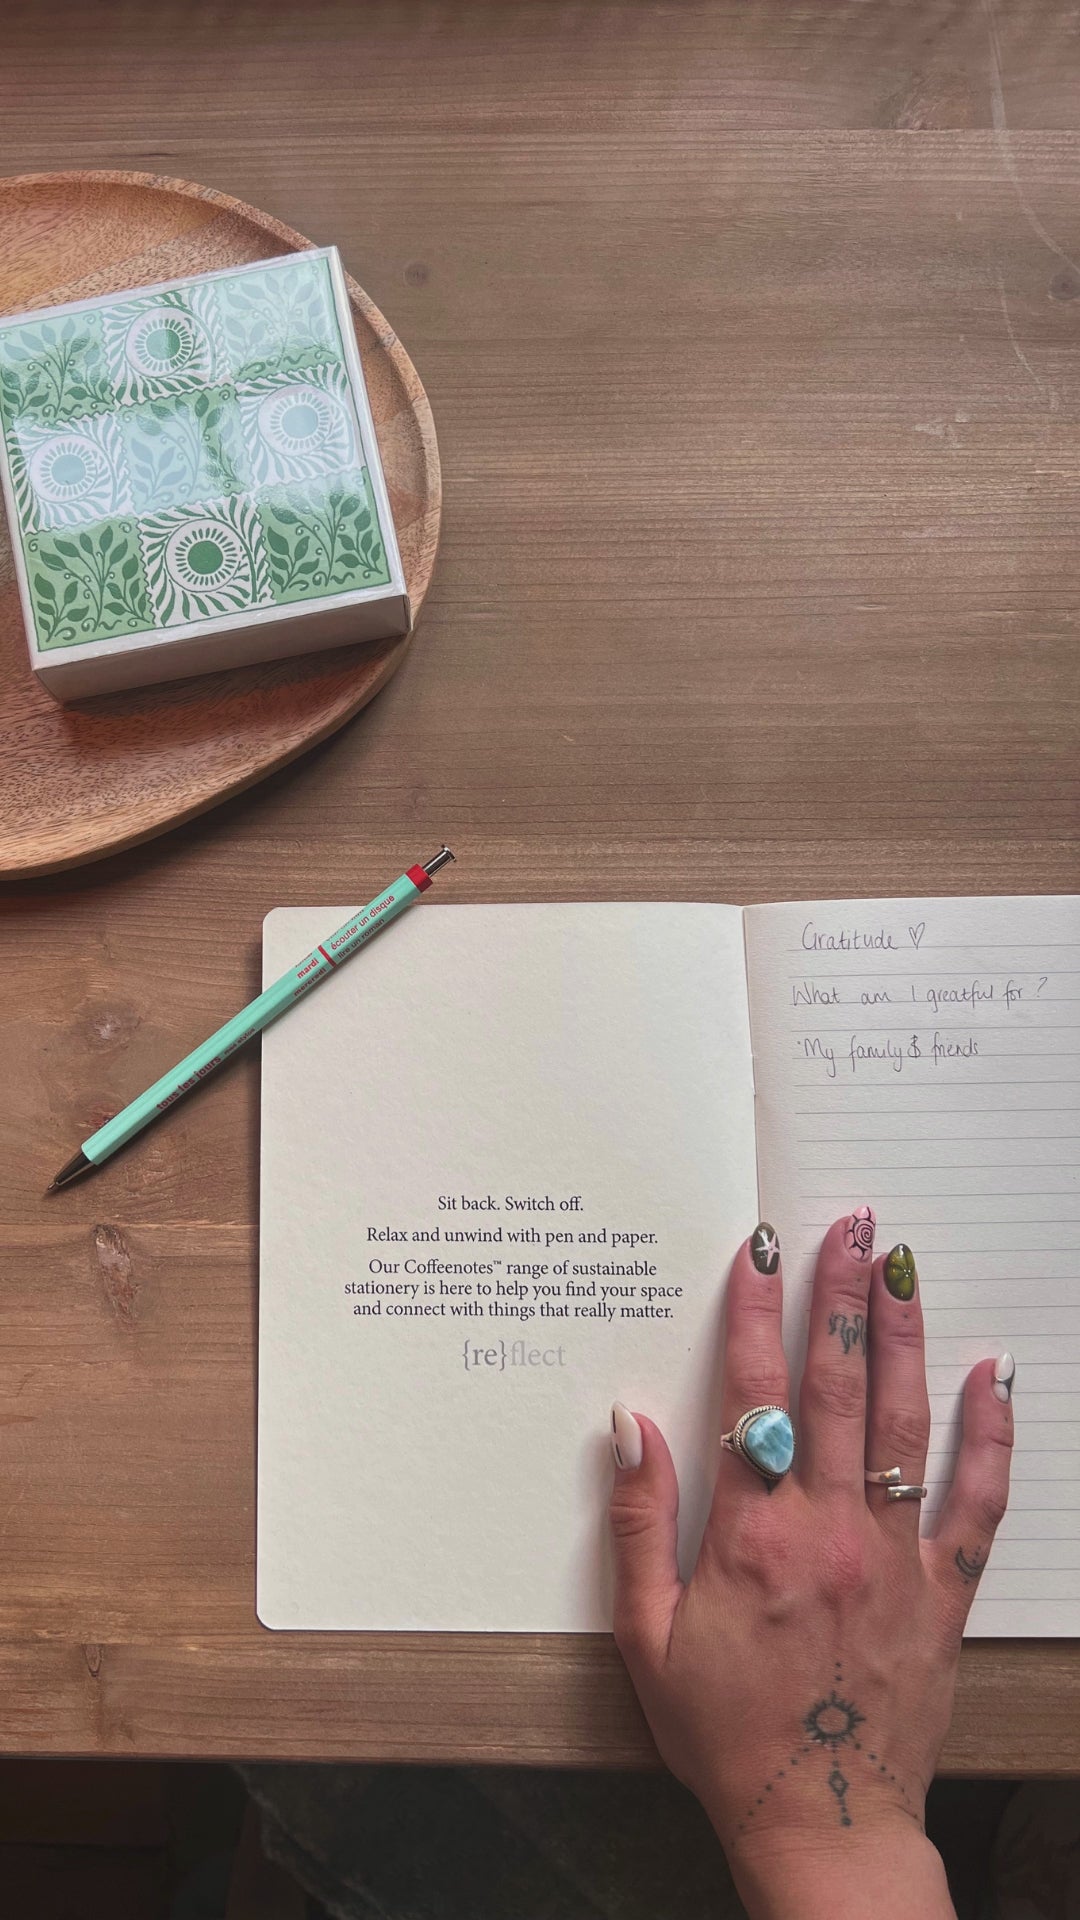 mardi écouter un disque
mercredi lire un roman
tous les jours
Sit back. Switch off.
Relax and unwind with pen and paper.
Our Coffeenotes™ range of sustainable
stationery is here to help you find your space
and connect with things that really matter.
{re}flect
Gratitude ♡
What am I greatful for ?
•My family & friends